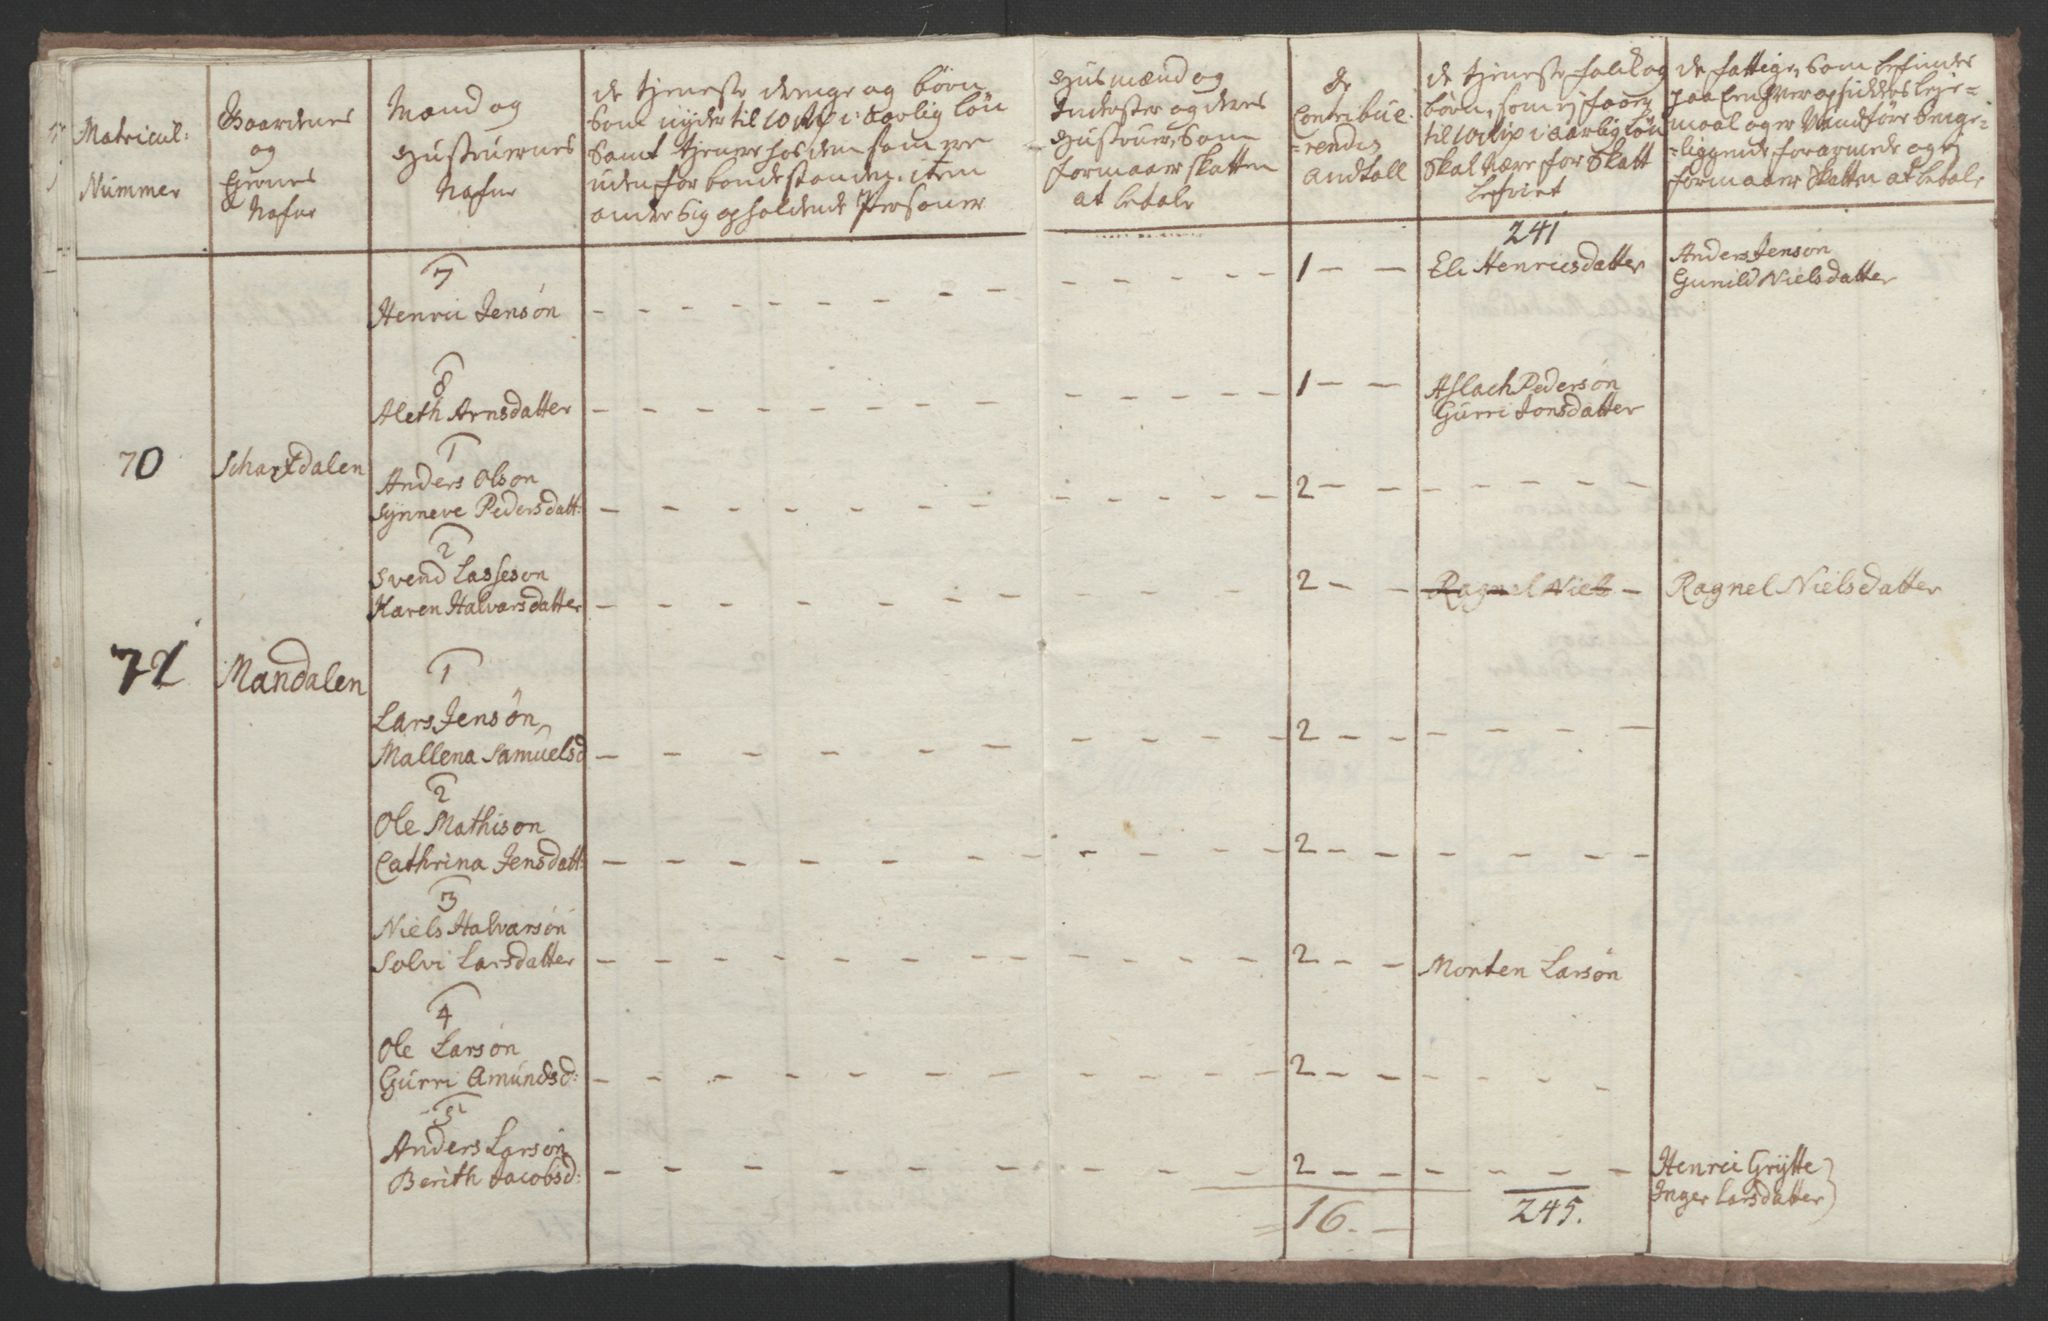 Matricul:
Nummer
Gaardenes
og
Eiernes
Nafne
Mænd og
Hustruernes
Nafne
de tjeneste drenge og børn
som nyder til 10 rdl i aarlig løn
samt tjener hos dem som ere
uden for bondestanden, item
andre sig opholdende Personer
Huusmænd og
Inderster og deres
Hustruer, som
formaar skatten
at betale
de
Contribue-
-rendes
andtall
de tjeneste folk og
børn, som ej faaer
til 10 rdl i aarlig løn
skal være for skatt
befriet
de fattige, som befindes
paa Enhver opsidderes leje-
maal og er Vandføre senge-
-liggende forarmede og ej
formaaer Skatten at betale
241
7
Henric Jensøn - - - 1 - -
Eli Henricsdatter
Anders Jenson
Gunild Nielsdatter
8
Aleth Arnsdatter - - - 1 - -
Aslach Pedersøn
Gurri Jonsdatter
70 Schartdalen
1
Anders Olson
Synneve Pedersdatt: - - - 2 - -
2
Svend Lasseson
Karen Halvarsdatter - - - 2 - - Ragnel Niels - Ragnel Nielsdatter
71 Mandalen
1
Lars Jensøn
Mallena Samuelsd - - - 2 - - -
2
Ole Mathison
Cathrina Jensdatt: - - - 2 - - -
3
Niels Halvarsøn
Solvi Larsdatter - - - 2 - - Morten Larsøn
4
Ole Larsøn
Gurri Amundsd: - - - 2 - - -
5
Anders Larsøn
Berith Jacobsd: - - - 2 - - -
Henrei Grytte
Inger Larsdatter
16. -
245.